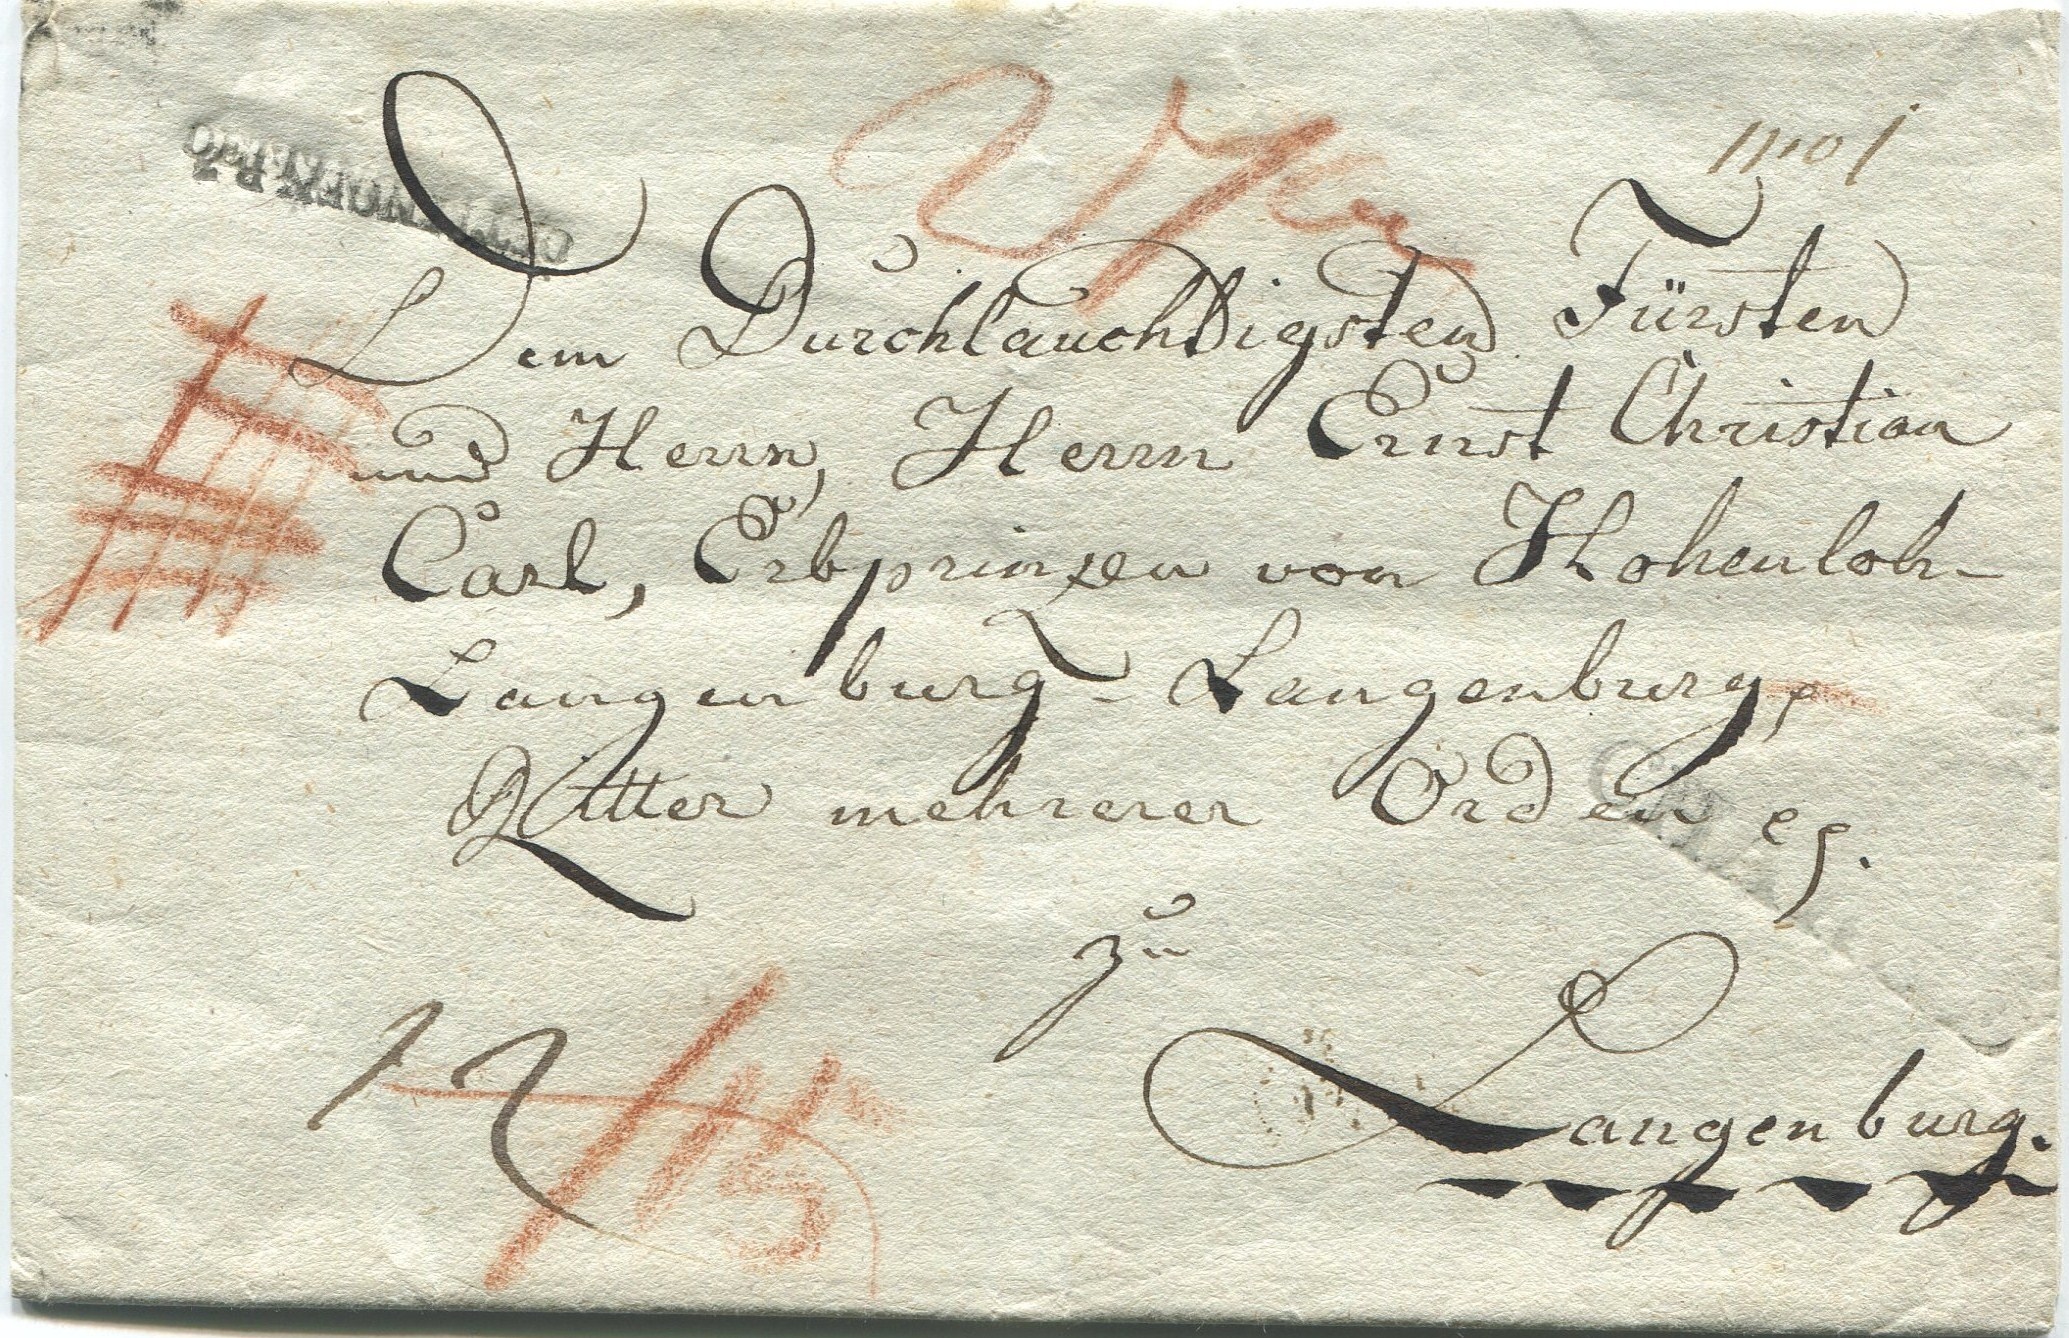 Dem Durchlauchtigsten Fürsten
und Herrn, Herrn Ernst Christian
Carl, Erbprinzen von Hohenloh-
Langenburg-Langenburg,
Ritter mehrerer Orden
zu
Langenburg.
12